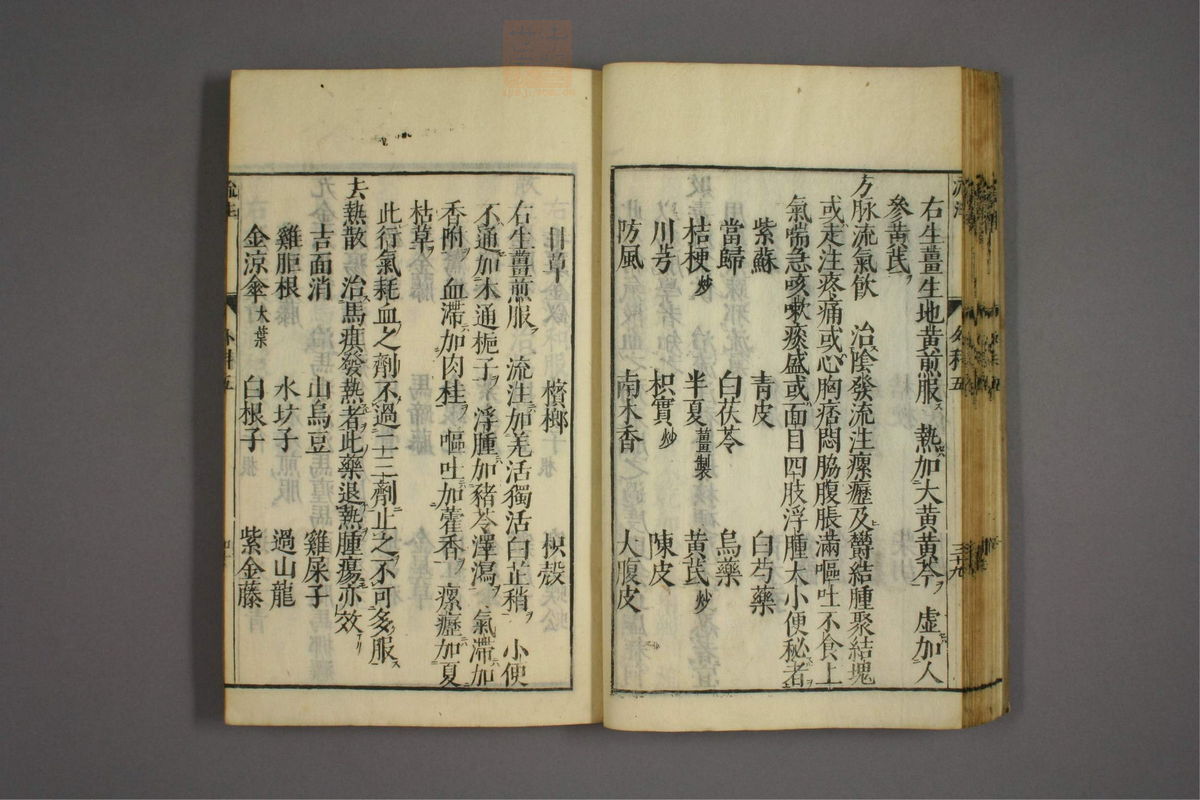 右生薑生地黃煎服 熱加大黃黃芩 虛加人
參黃芪
方脉流氣飲 治陰發流注瘰癧及欝結腫聚結塊
或走注疼痛或心胸痞悶脇腹脹滿嘔吐不食上
氣喘急咳嗽痰盛或面目四肢浮腫大小便秘者
紫蘇 青皮 白芍藥
當歸 白茯苓 烏藥
桔梗炒 半夏薑製 黃芪炒
川芎 枳實炒 陳皮
防風 南木香 大腹皮
甘草 檳榔 枳殼
右生薑煎服 流注加羌活獨活白芷稍 小便
不通加木通梔子 浮腫加豬苓澤瀉 氣滯加
香附 血滯加肉桂 嘔吐加藿香 瘰癧加夏
枯草
此行氣耗血之劑不過二三劑止之不可多服
去熱散 治馬㾮發熱者此藥退熱腫瘍亦效
金吉面消 山烏豆 雞屎子
雞胵根 水坎子 過山龍
金涼傘大葉 白根子 紫金藤